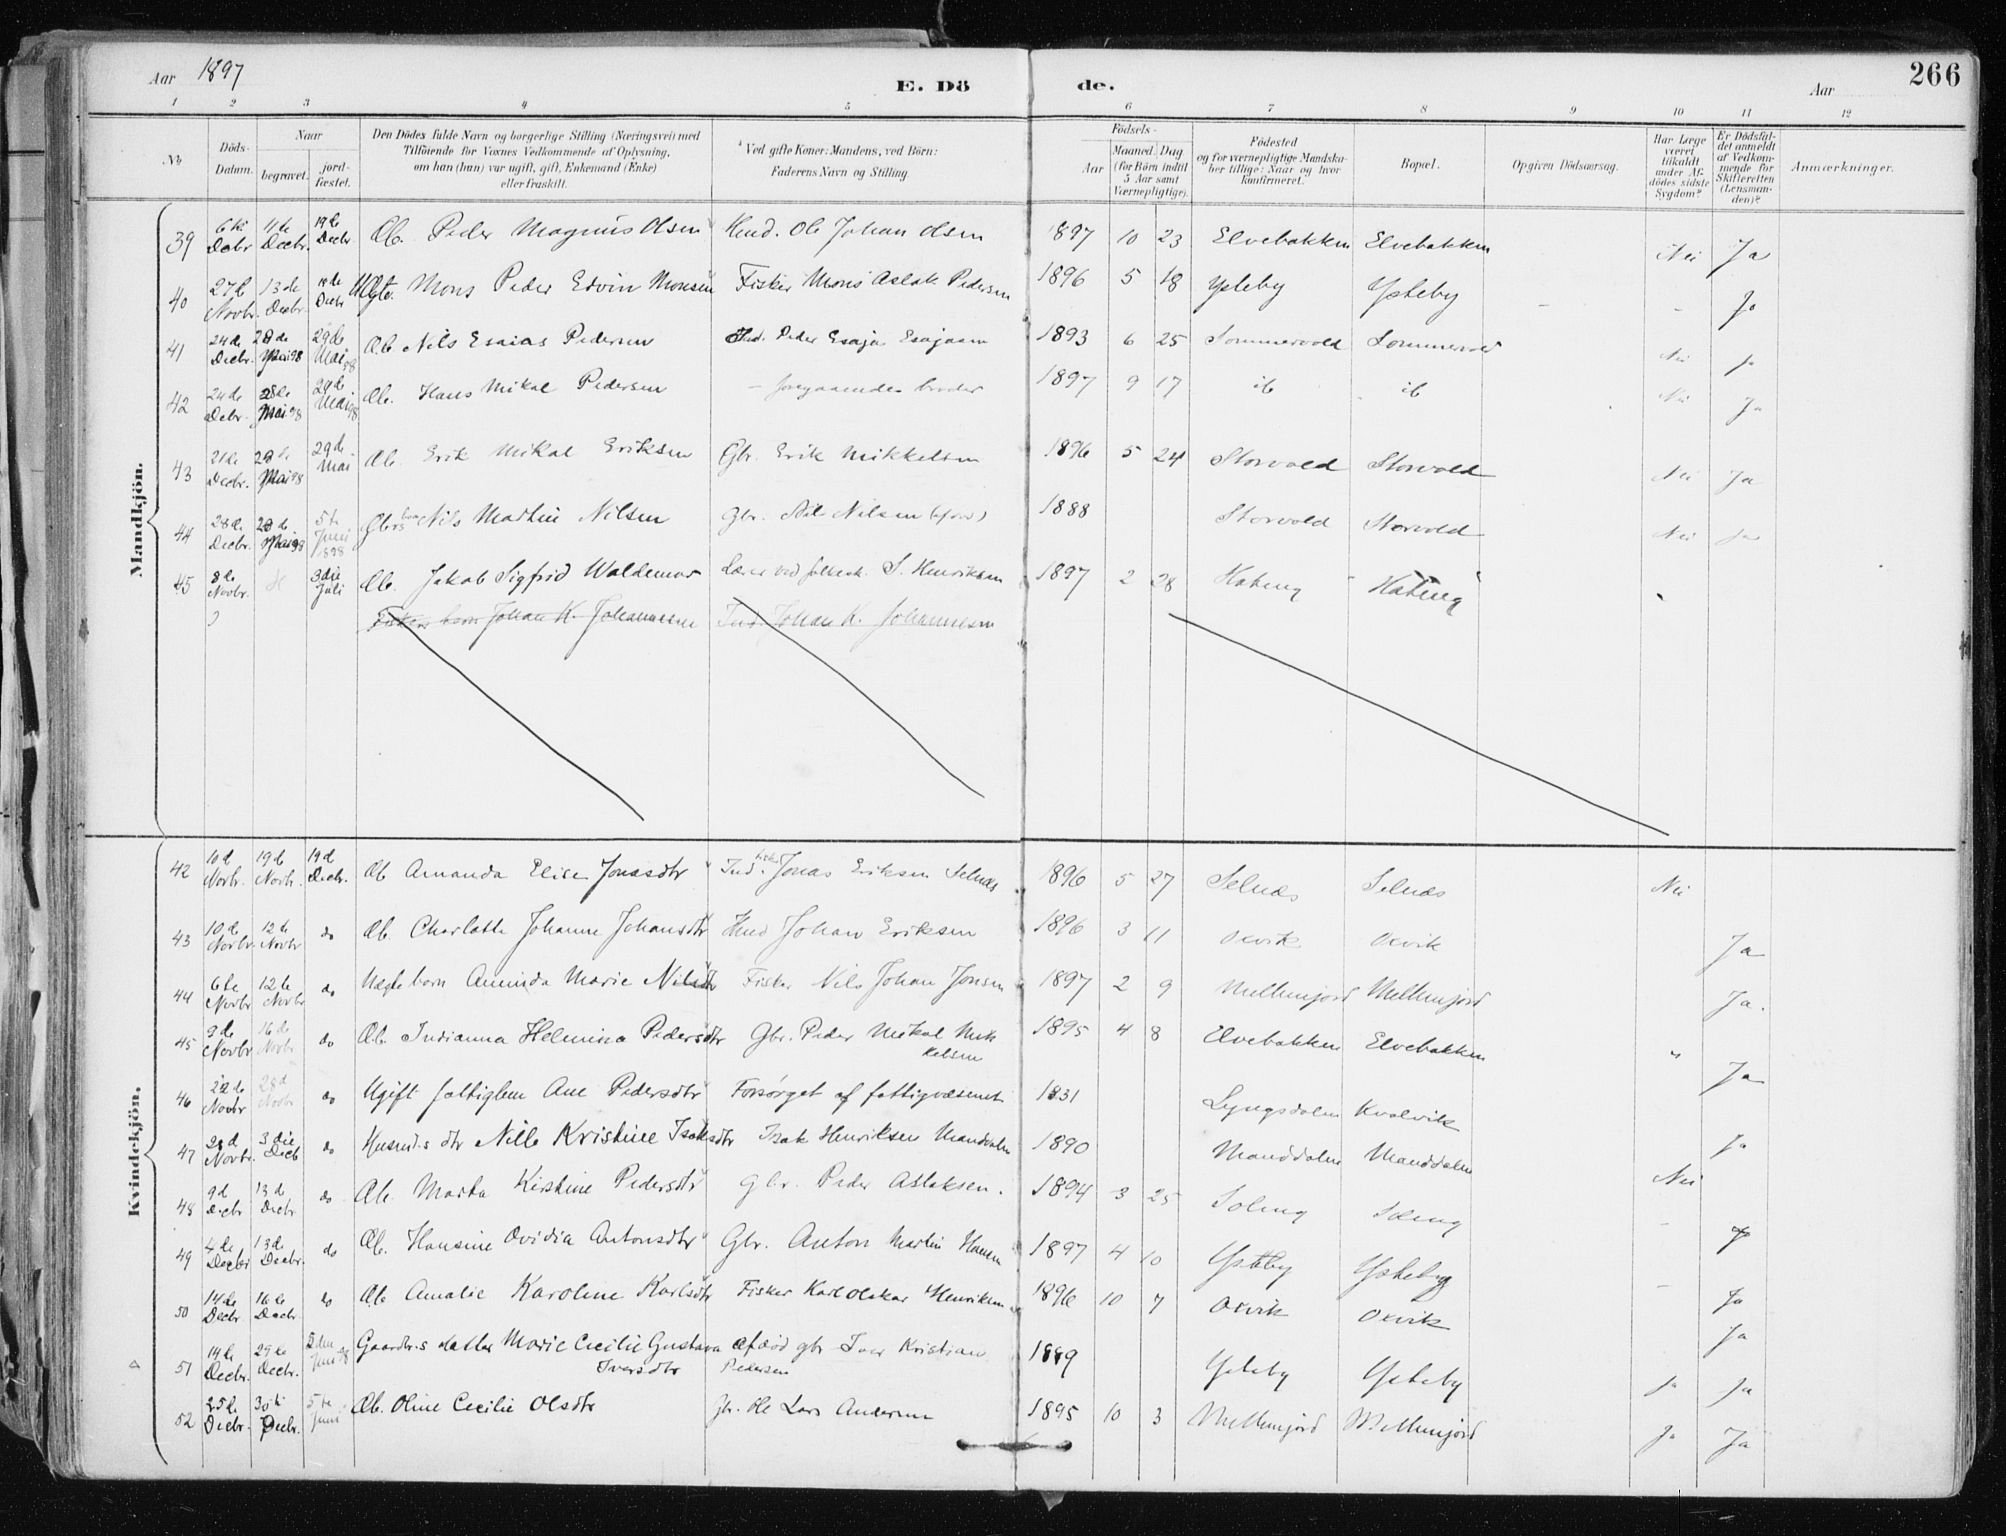 Aar 1897 E. Döde. Aar 266
1 2 3 4 5 6 7 8 9 10 11 12
No Döds-Datum. Naar begravet. jord-fæstet. Den Dödes fulde Navn og borgerlige Stilling (Næringsvei) med Tilföiende for Voxnes Vedkommende af Oplysning, om han (hun) var ugift, gift, Enkemand (Enke) eller fraskilt. Ved gifte Koner: Mandens, ved Börn: Faderens Navn og Stilling. Födsels- Aar Maaned. Dag (for Börn indtil 5 Aar samt Værnepligtige). Födested og for værnepligtige Mandska-ber tillige: Naar og hvor konfirmeret. Bopæl. Opgiven Dödsaarsag. Har Læge været tilkaldt under Af-dödes sidste Sygdom? Er Dödsfal-det anmeldt af Vedkom-mende for Skifteretten (Lensman-den)? Anmærkninger.
Mandkjön.
39 6te Decbr 11te Decbr. 19de Decbr Æb. Peder Magnus Olsen Husd. Ole Johan Olsen 1897 10 23 Elvebakken Elvebakken Nei Ja
40 27de Novbr. 13de Decbr. 19de Decbr Uægte. Mons Peder Edvin Monsen Fisker Mons Aslak Pedersen 1896 5 18 Ysteby Ysteby - - Ja
41 24de Decbr. 28de Mai 98 29de Mai 98 Æb Nils Esaias Pedersen Ind. Peder Esajas Esajasen 1893 6 25 Sommervold Sommervold Nei Ja
42 24de Decbr. 28de Mai 98 29de Mai 98 Æb. Hans Mikal Pedersen - foregaaendes broder 1897 9 17 ib ib Nei Ja
43 21de Decbr. 28de Mai 98 29de Mai Æb. Erik Mikal Eriksen Gbr. Erik Mikkelsen 1896 5 24 Storvold Storvold Nei Ja
44 28de Decbr. 28de Mai 98 5te Juni 1898 Gbrs søn Nils Martin Nilsen Gbr. Nils Nilsen 1888 Storvold Storvold Nei Ja
45 8de Novbr. 3die Juli Æb. Jakob Sigfrid Waldemar Lærer ved folkesk. S. Henriksen 1897 2 28 Hateng Hateng
Fiskers barn Johan K. Johannesen Ind. Johan K. Johannesen
Kvindekjön.
42 10de Novbr. 19de Novbr. 19de Decbr. Æb Amanda Elise Jonasdtr Ind. fisker Jonas Eriksen Selnæs 1896 5 27 Selnæs Selnæs Nei
43 10de Novbr. 12te Novbr do Æb. Charlotte Johanne Johansdtr Husd Johan Eriksen 1896 3 11 Oxvik Oxvik Ja
44 6te Novbr 12te Novbr do Uægte barn Aminda Marie Nilsdtr Fisker Nils Johan Jonsen 1897 2 9 Mellemjord Mellemjord Ja.
45 9de Novbr. 16de Novbr do Æb. Indianna Helmina Pedersdtr Gbr. Peder Mikal Mik
kelsen 1895 4 8 Elvebakken Elvebakken " Ja
46 22de Novbr 28de Novbr do Ugift fattiglem Ane Pedersdtr Forsörget af fattigvæsenet 1831 Lyngsdalen Kvalvik Ja
47 Novbr. 3die Decb do Husmds dtr Nille Kristine Isaksdtr Isak Henriksen Manddalen 1890 Manddalen Manddalen Nei
48 9de Decbr 13de Decbr do Æb. Marta Kirstine Pedersdtr Gbr. Peder Aslaksen. 1894 3 25 Soleng Soleng - Ja
49 4de Decbr 13de Decbr. do Æb. Hansine Ovidia Antonsdtr Gbr. Anton Martin Hansen 1897 4 10 Ysteby Ysteby - Ja
50 14de Decbr 16de Decbr. do Æb Amalie Karoline Karlsdtr Fisker Karl Oskar Henriksen 1896 10 7 Oxvik Oxvik Ja
51 14de Decbr. 29de Decbr. Juni 98 Gaardbr.s datter Marie Cecilie Gustava
Iversdtr afdöd gbr Iver Kristian
Pedersen 1889 Ysteby Ysteby Ja Ja
52 25de Decbr. 30te Decbr. 5te Juni Æb. Oline Cecilie Olsdtr Gbr. Ole Lars Andersen 1895 10 3 Mellemjord Mellemjord Ja Ja